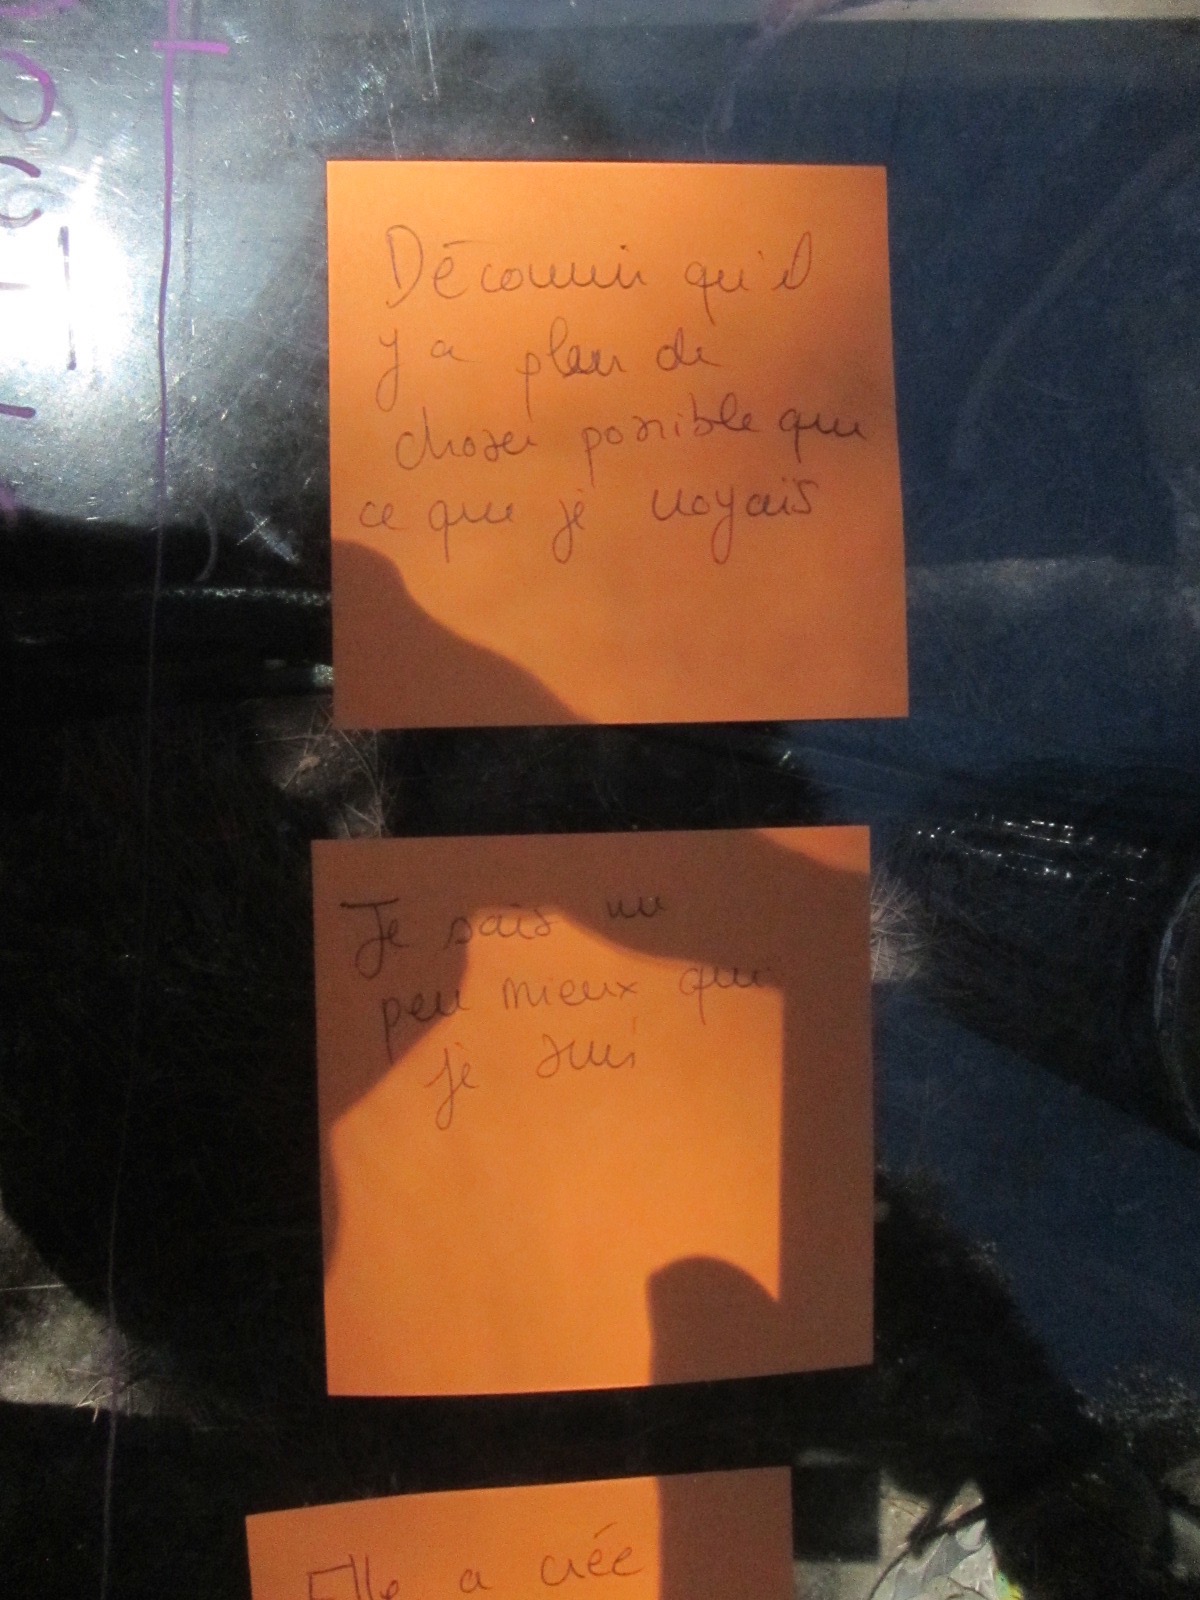 Découvrir qu'il
y a plein de
choses possible que
ce que je voyais
Je sais un
peu mieux qui
je suis
Elle a créé